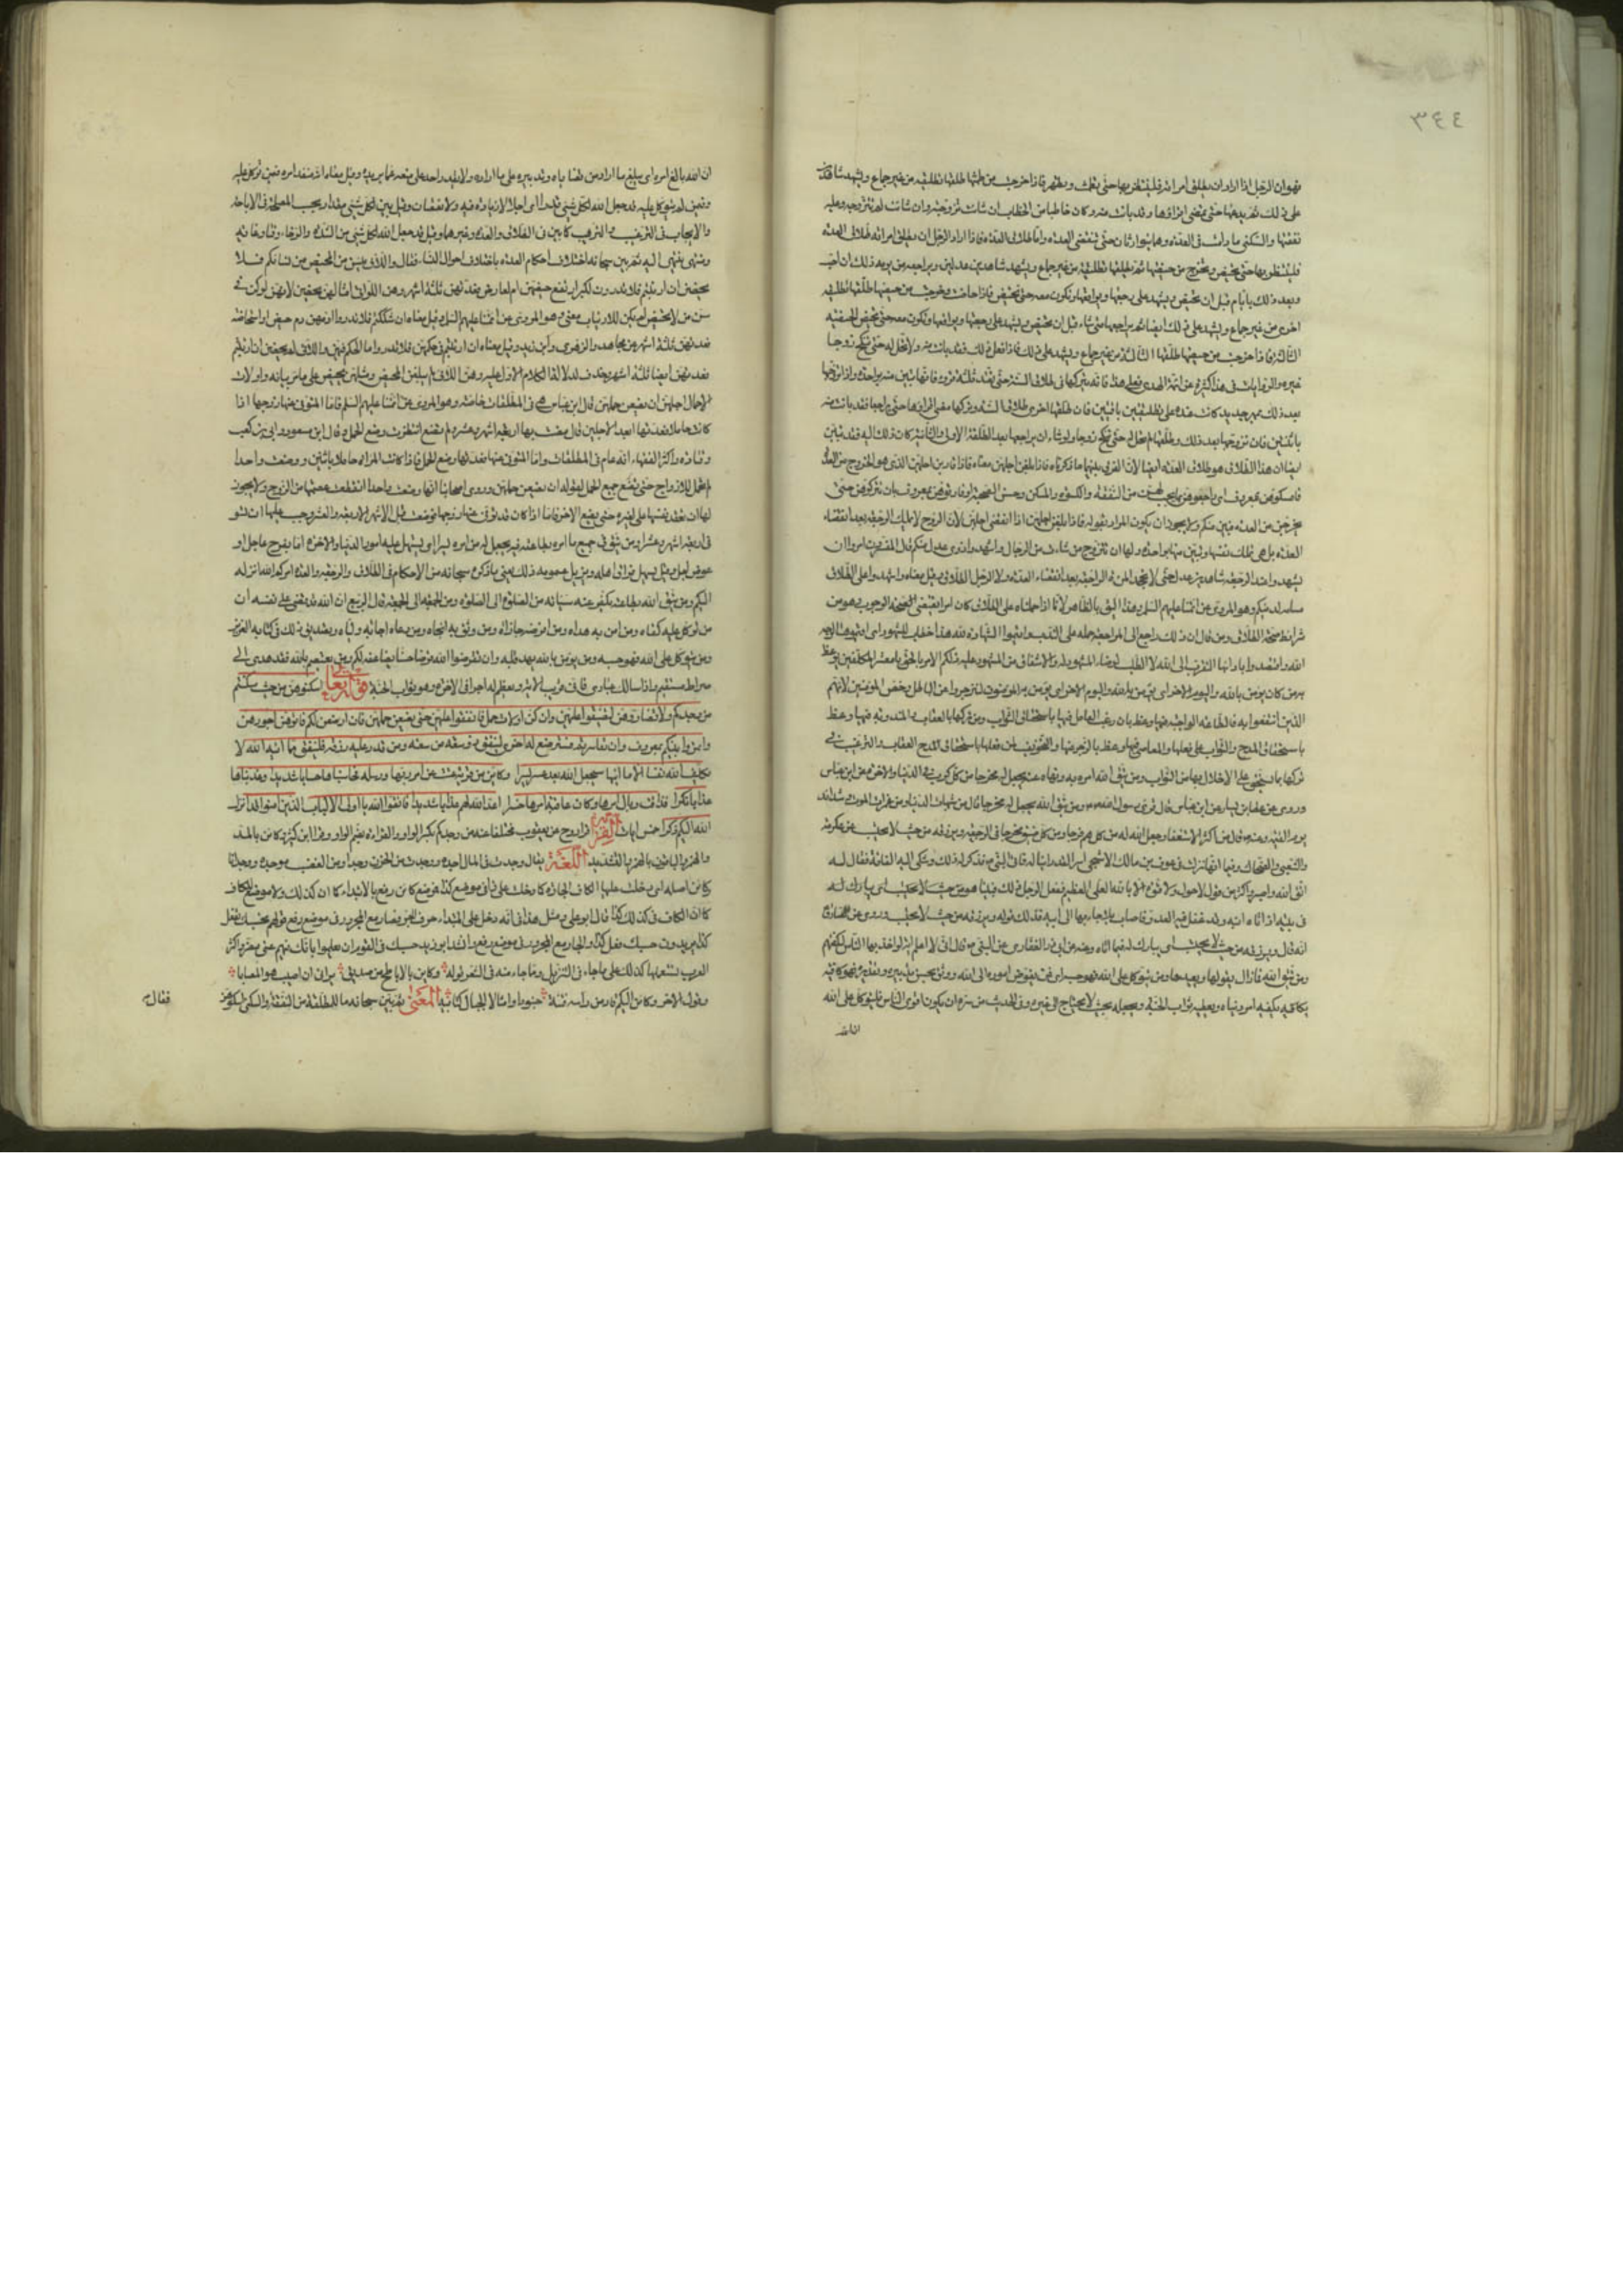 ٣٤٤
فهو ان الرجل اذا اراد ان يطلق امراته فلينتظر بها حتى تحيض وتطهر فاذا خرجت من طمثها طلقها تطليقة من غير جماع ويشهد شاهدين
على ذلك ثم يدعها حتى تمضي اقراؤها وقد بانت منه وكان خاطبا من الخطاب ان شاءت تزوجته وان شاءت لم تتزوجه وعليه
نفقتها والسكنى ما دامت في العدة وهما يتوارثان حتى تنقضي العدة واما طلاق العدة فاذا اراد الرجل ان يطلق امراته طلاق العدة
فلينتظر بها حتى تحيض وتخرج من حيضها ثم يطلقها تطليقة من غير جماع ويشهد شاهدين عدلين ويراجعها من يومه ذلك ان احب
وبعد ذلك بايام قبل ان تحيض ويشهد على رجعتها ويواقعها وتكون معه حتى تحيض فاذا حاضت وخرجت من حيضها طلقها تطليقة
اخرى من غير جماع ويشهد على ذلك ايضا ثم يراجعها متى شاء قبل ان تحيض ويشهد على رجعتها ويواقعها وتكون معه حتى تحيض الحيضة
الثالثة فاذا خرجت من حيضها طلقها الثالثة من غير جماع ويشهد على ذلك فاذا فعل ذلك فقد بانت منه ولا تحل له حتى تنكح زوجا
غيره والروايات في هذا كثيرة عن ائمة الهدى فعلى هذا فانه يتركها في طلاق السنة حتى تعتد ثلثة قروء فانها تبين منه بواحدة واذا تزوجها
بعد ذلك بمهر جديد كانت عنده على تطليقتين باقيتين فان طلقها اخرى طلاق السنة وتركها حتى تمضي اقراؤها حتى يراجعها فقد بانت منه
باثنتين فان تزوجها بعد ذلك وطلقها لم تحل له حتى تنكح زوجا ولو شاء ان يراجعها بعد الطلقة الاولى والثانية كان ذلك اليه فقد تبين
ايضا ان هذا الطلاق هو طلاق العدة ايضا لان الفرق بينهما ما ذكرناه فاذا بلغن اجلهن معناه فاذا قاربن اجلهن الذي هو الخروج من العدة
فامسكوهن بمعروف اي راجعوهن بما يجب لهن من النفقة والكسوة والمسكن وحسن الصحبة او فارقوهن بمعروف بان تتركوهن حتى
يخرجن من العدة فتبين منكم ولا يجوز ان يكون المراد بقوله فاذا بلغن اجلهن اذا انقضى اجلهن لان الزوج لا يملك الرجعة بعد انقضاء
العدة بل هي تملك نفسها وتبين منه بواحدة ولها ان تتزوج من شاءت من الرجال واشهدوا ذوي عدل منكم قال المفسرون امروا ان
يشهدوا عند الرجعة شاهدين عدلين حتى لا تجحد المرأة المراجعة بعد انقضاء العدة ولا الرجل الطلاق وقيل معناه واشهدوا على الطلاق
صيانة لدينكم وهو المروي عن ائمتنا عليهم السلم وهذا اليق بالظاهر لانا اذا حملناه على الطلاق كان امرا يقتضي الوجوب وهو من
شرايط صحة الطلاق ومن قال ان ذلك راجع الى المراجعة حمله على الندب واقيموا الشهادة لله هذا خطاب للشهود اي اقيموها لوجه
الله واقصدوا بادائها التقرب الى الله لا الطلب لرضاء المشهود له والاشفاق من المشهود عليه ذلكم الامر بالحق يا معشر المكلفين يوعظ
به من كان يؤمن بالله واليوم الاخر اي يؤمر به المؤمنون لينزجروا عن الباطل وخص المؤمنين لانهم
الذين انتفعوا به فالطاعة الواجبة فيها وعظ بان رغب العامل فيها باستحقاق الثواب وفي تركها بالعقاب والمندوبة فيها وعظ
باستحقاق المدح والثواب على فعلها والمعاصي فيها وعظ بالزجر عنها والتخويف من فعلها باستحقاق العقاب والترغيب في
تركها بما يستحق على الاخلال بها من الثواب ومن يتق الله امره به ونهاه عنه يجعل له مخرجا من كل كرب في الدنيا والاخرة عن ابن عباس
وروي عن عطاء بن يسار عن ابن عباس قال قرى رسول الله ومن يتق الله يجعل له مخرجا قال من شبهات الدنيا ومن غمرات الموت وشدائد
يوم القيمة وعنه قال من اكثر الاستغفار جعل الله له من كل هم فرجا ومن كل ضيق مخرجا ويرزقه من حيث لا يحتسب عن عكرمة
والشعبي والضحاك وقيل انها نزلت في عوف بن مالك الاشجعي اسر العدو ابنا له فاتى النبي فذكر له ذلك وشكى اليه الفاقة فقال له
اتق الله واصبر واكثر من قول لا حول ولا قوة الا بالله العلي العظيم ففعل الرجل ذلك فبينا هو
في بيته اذ اتاه ابنه وقد غفل عنه العدو فاصاب ابلا وجاء بها الى ابيه فذلك قوله ويرزقه من حيث لا يحتسب وروي عن الصادق
انه قال ويرزقه من حيث لا يحتسب اي يبارك له فيما اتاه وعن ابي ذر الغفاري عن النبي قال اني لاعلم اية لو اخذ بها الناس لكفتهم
ومن يتق الله فما زال يقولها ويعيدها ومن يتوكل على الله فهو حسبه اي من يفوض اموره الى الله ووثق بحسن تدبيره وتقديره فهو كافيه
يكفيه امر دنياه ويعطيه ثواب الجنة ويجعله بحيث لا يحتاج الى غيره وفي الحديث من سره ان يكون اقوى الناس فليتوكل على الله
ان الله
ان الله بالغ امره اي يبلغ ما اراد من قضاياه وتدبيره على ما اراده ولا يقدر احد على منعه عما يريده وقيل معناه انه منفذ امره فيمن توكل عليه
وفيمن لم يتوكل عليه قد جعل الله لكل شيء قدرا اي اجلا لا زيادة فيه ولا نقصان وقيل بين لكل شيء مقدارا بحسب المصلحة في الاباحة
والايجاب في الترغيب والترهيب كما بين في الطلاق والعدة وغيرهما وقيل قد جعل الله لكل شيء من الشدة والرخاء وقتا وغاية
ومنتهى ينتهي اليه ثم بين سبحانه اختلاف احكام العدة باختلاف احوال النساء فقال واللائي يئسن من المحيض من نسائكم فلا
يحضن ان ارتبتم فلا تدرون لكبر ارتفع حيضهن ام لعارض فعدتهن ثلثة اشهر وهن اللواتي امثالهن يحضن لانهن لو كن في
سن من لا تحيض لم يكن للارتياب معنى وهو المروي عن ائمتنا عليهم السلم وقيل معناه ان شككتم فلا تدرون ادمهن دم حيض او استحاضة
فعدتهن ثلثة اشهر عن مجاهد والزهري وابن زيد وقيل معناه ان ارتبتم في حكمهن فلا تدرون ما الحكم فيهن واللائي لم يحضن ان ارتبتم
فعدتهن ايضا ثلثة اشهر وحذف لدلالة الكلام الاول عليه وهن اللائي لم يبلغن المحيض ومثلهن تحيض على ما مر بيانه واولات
الاحمال اجلهن ان يضعن حملهن قال ابن عباس هي في المطلقات خاصة وهو المروي عن ائمتنا عليهم السلم فاما المتوفى عنها زوجها اذا
كانت حاملا فعدتها ابعد الاجلين فان مضت بها اربعة اشهر وعشر ولم تضع انتظرت وضع الحمل وقال ابن مسعود وابي بن كعب
وقتادة واكثر الفقهاء انه عام في المطلقات والمتوفى عنها فعدتها وضع الحمل فاذا كانت المراة حاملا باثنين ووضعت واحدا
لم تحل للازواج حتى تضع جميع الحمل لقوله ان يضعن حملهن وروى اصحابنا انها اذا وضعت واحدا انقطعت عصمتها من الزوج ولا يجوز
لها ان تعقد نفسها على غيره حتى تضع الاخر فاما اذا كانت قد توفي عنها زوجها فوضعت قبل الاشهر الاربعة والعشر وجب عليها ان تستوفي
اربعة اشهر وعشرا ومن يتق الله في جميع ما امره بطاعته فيه يجعل له من امره يسرا اي يسهل عليه امور الدنيا والاخرة اما بفرج عاجل او
عوض اجل وقيل يسهل عليه فراق اهله ويزيل همومه ذلك يعني ما ذكره سبحانه من الاحكام في الطلاق والرجعة والعدة امر الله انزله
اليكم ومن يتق الله بطاعته يكفر عنه سيئاته من الصلوة الى الصلوة ومن الجمعة الى الجمعة قال الربيع ان الله قد قضى على نفسه ان
من توكل عليه كفاه ومن امن به هداه ومن اقرضه جازاه ومن وثق به انجاه ومن دعاه اجابه ولباه وتصديق ذلك في كتابه العزيز
ومن يتوكل على الله فهو حسبه ومن يؤمن بالله يهد قلبه وان تقرضوا الله قرضا حسنا يضاعفه لكم ومن يعتصم بالله فقد هدي الى
صراط مستقيم واذا سالك عبادي فاني قريب الاية ويعظم له اجرا في الاخرة وهو ثواب الجنة قوله تعالى اسكنوهن من حيث سكنتم
من وجدكم ولا تضاروهن لتضيقوا عليهن وان كن اولات حمل فانفقوا عليهن حتى يضعن حملهن فان ارضعن لكم فاتوهن اجورهن
وأتمروا بينكم بمعروف وان تعاسرتم فسترضع له اخرى لينفق ذو سعة من سعته ومن قدر عليه رزقه فلينفق مما آتيه الله لا
يكلف الله نفسا الا ما اتيها سيجعل الله بعد عسر يسرا وكاين من قرية عتت عن امر ربها ورسله فحاسبناها حسابا شديدا وعذبناها
عذابا نكرا فذاقت وبال امرها وكان عاقبة امرها خسرا اعد الله لهم عذابا شديدا فاتقوا الله يا اولي الالباب الذين امنوا قد انزل
الله اليكم ذكرا خمس ايات القراءة قرا روح عن يعقوب مختلفا عنه من وجدكم بكسر الواو والقراءة بضم الواو وقرا ابن كثير وكائن بالمد
والهمز والباقون بالهمز والتشديد اللغة يقال وجدت في المال جدة ووجدت من الحزن وجدا ومن الغضب موجدة ووجدانا
وكاين اصله اي دخلت عليها الكاف الجارة كما دخلت على ذا في موضع كذا فموضع كاين رفع بالابتداء كما ان كذلك ولا موضع للكاف
كما ان الكاف في كذلك كذا قال ابو علي ومثل هذا في انه دخل على المبتدا حرف الجر فصار مع المجرور في موضع رفع قولهم بحسبك ان تفعل
كذا يريدون حسبك فعل كذا والجار مع المجرور في موضع رفع وانشد ابو زيد بحسبك في القوم ان يعلموا بانك فيهم غني مضر واكثر
العرب تستعملها كذلك على ما جاء في التنزيل ومما جاء منه في الشعر قوله وكاين بالاباطح من صديق يراني ان اصيب هو المصابا
وقول الاخر وكاين اليكم قاد من راس فتنة جنودا وامثال الجبال كتائبه المعنى ثم بين سبحانه ما للمطلقة من النفقة والسكنى
فقال